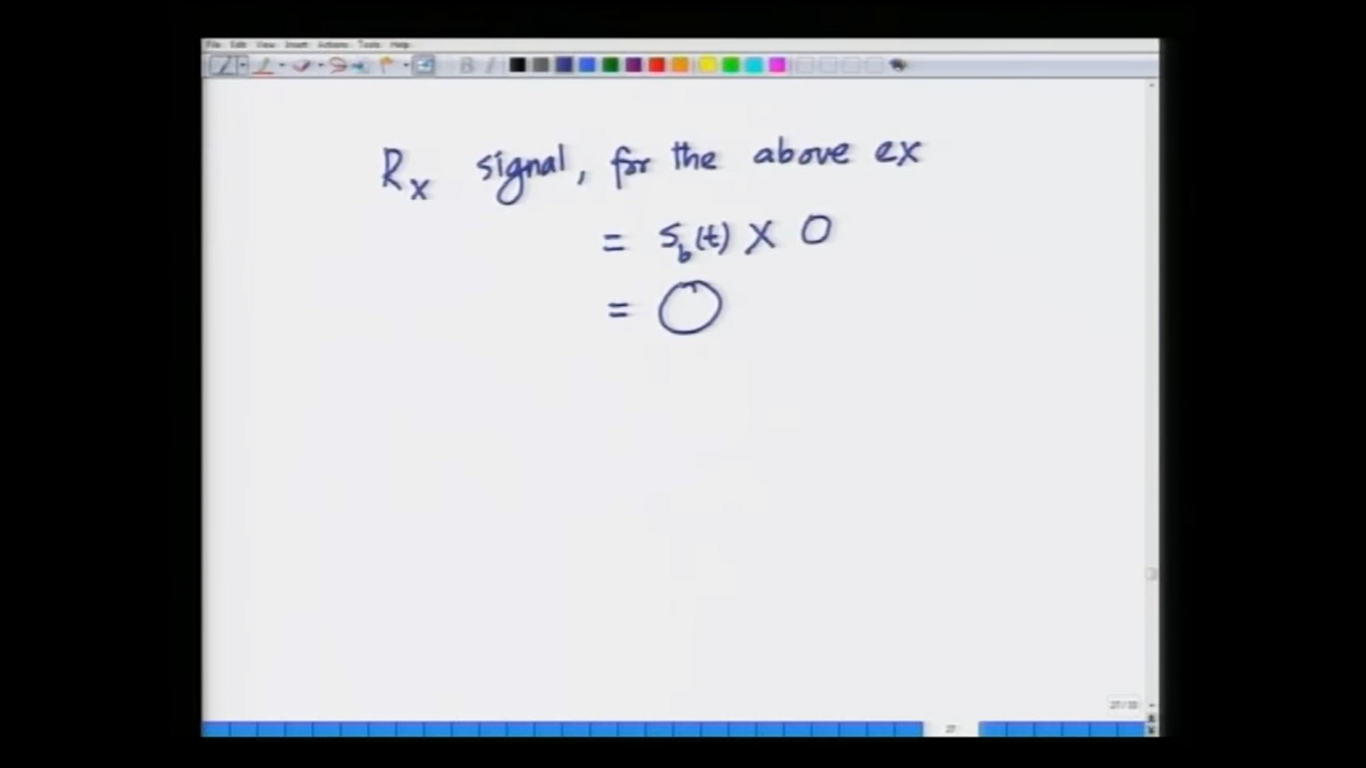 File Edit View Insert Actions Tools Help
B I
Rx signal, for the above ex
= s_b(t) X 0
= 0
27/33
27